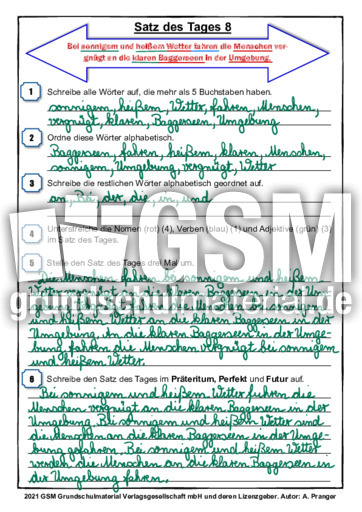 Satz des Tages 8
Bei sonnigem und heißem Wetter fahren die Menschen ver-
gnügt an die klaren Baggerseen in der Umgebung.
1 Schreibe alle Wörter auf, die mehr als 5 Buchstaben haben.
sonnigem, heißem, Wetter, fahren, Menschen,
vergnügt, klaren, Baggerseen, Umgebung
2 Ordne diese Wörter alphabetisch.
Baggerseen, fahren, heißem, klaren, Menschen,
sonnigem, Umgebung, vergnügt, Wetter
3 Schreibe die restlichen Wörter alphabetisch geordnet auf.
an, Bei, der, die, in, und
4 Unterstreiche die Nomen (rot) (4), Verben (blau) (1) und Adjektive (grün) (3)
im Satz des Tages.
GSM
grundschulmaterial.de
5 Stelle den Satz des Tages drei Mal um.
Die Menschen fahren bei sonnigem und heißem
Wetter vergnügt an die klaren Baggerseen in der Um-
und heißem Wetter an die klaren Baggerseen in der
Umgebung. An die klaren Baggerseen in der Umge-
bung fahren die Menschen vergnügt bei sonnigem
und heißem Wetter.
6 Schreibe den Satz des Tages im Präteritum, Perfekt und Futur auf.
Bei sonnigem und heißem Wetter fuhren die
Menschen vergnügt an die klaren Baggerseen in der
Umgebung. Bei sonnigem und heißem Wetter sind
die Menschen an die klaren Baggerseen in der Umge-
bung gefahren. Bei sonnigem und heißem Wetter
werden die Menschen an die klaren Baggerseen in
der Umgebung fahren.
2021 GSM Grundschulmaterial Verlagsgesellschaft mbH und deren Lizenzgeber. Autor: A. Pranger